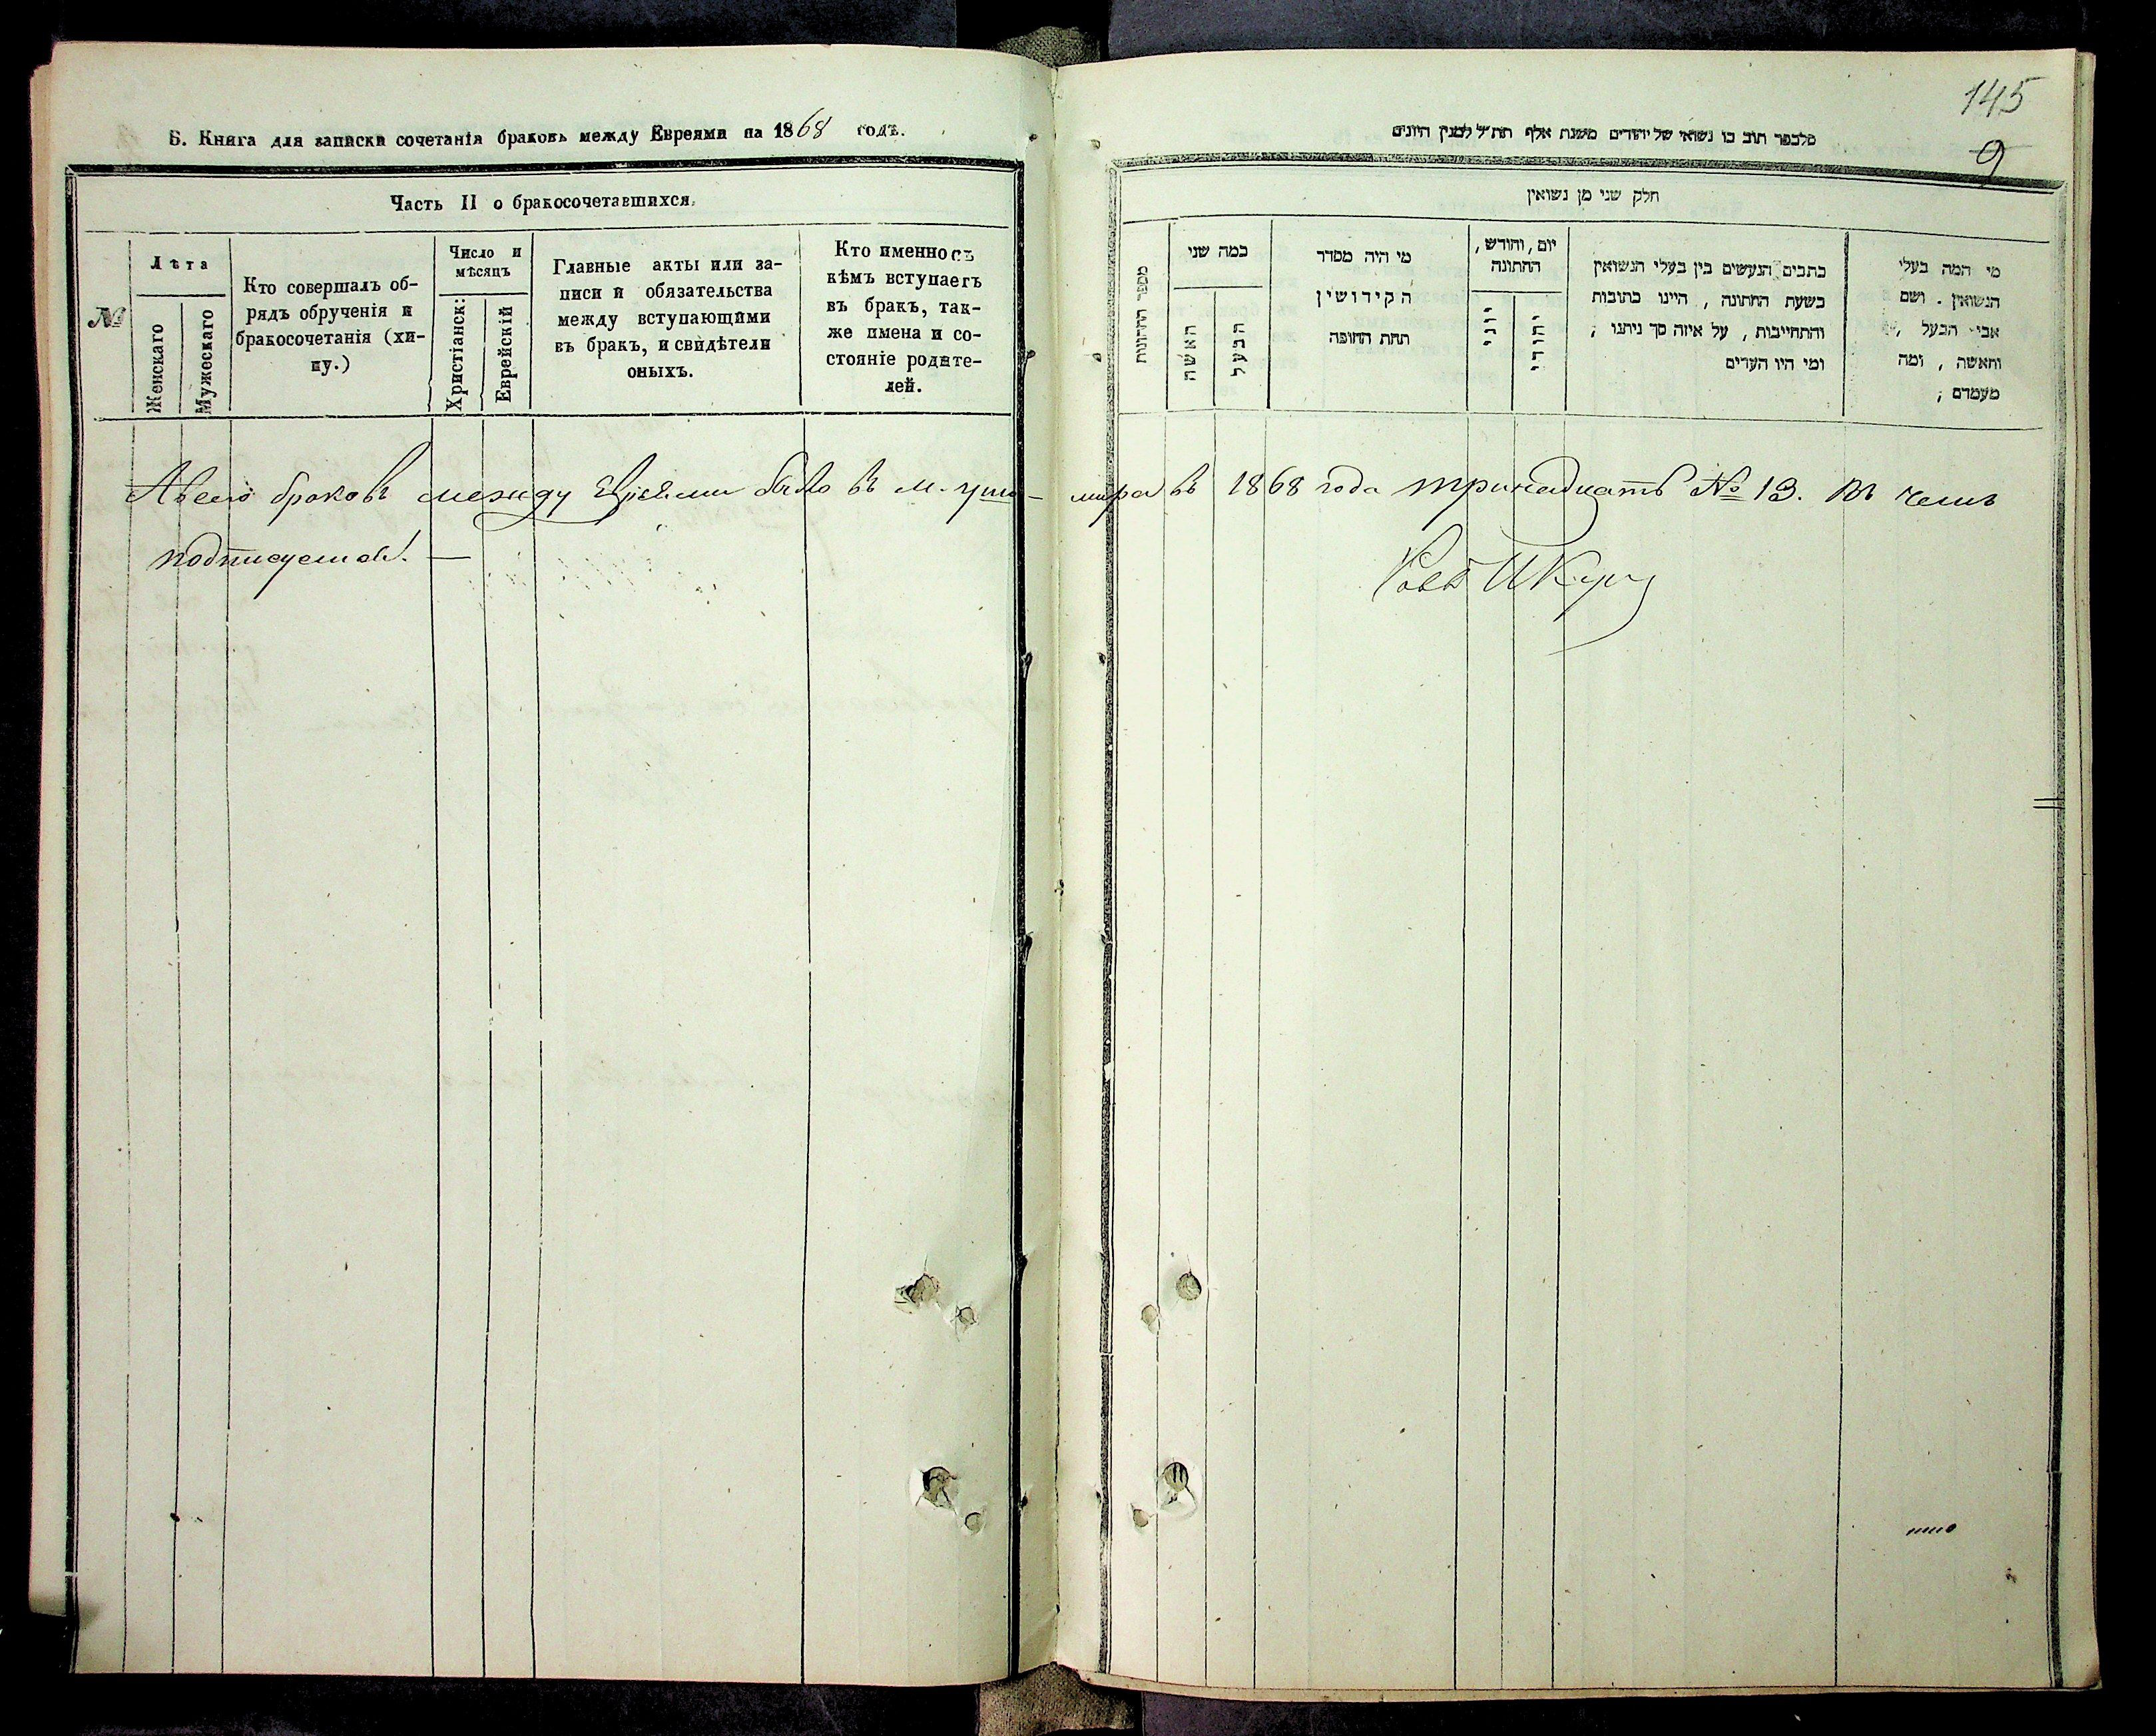 Б. Книга для записки сочетанія браковъ между Евреями на 1868 годъ.
Часть II о бракосочетавшихся.
№
Лѣта
Женскаго
Мужескаго
Кто совершалъ об-
рядъ обрученія и
бракосочетанія (хи-
пу.)
Число и
мѣсяцъ
Христіанск:
Еврейскій
Главные акты или за-
писи и обязательства
между вступающими
въ бракъ, и свидѣтели
оныхъ.
Кто именно съ
кѣмъ вступаетъ
въ бракъ, так-
же имена и со-
стояніе родите-
лей.
145
9
חלק שני מן נשואין
מספר החתונות
כמה שני
האשה
הבעל
מי היה מסדר
הקידושין
תחת החופה
יום, וחודש,
החתונה
יוני
יהודי
כתבים הנעשים בין בעלי הנשואין
בשעת החתונה, היינו כתובות
והתחייבות, על איזה סך ניתנו;
ומי היו העדים
מי המה בעלי
הנשואין. ושם
אבי הבעל,
והאשה, ומה
מעמדם;
А всего браковъ между Евреями было въ м. Уши- мира въ 1868 года тринадцать № 13. Въ чемъ
подписуемся. —